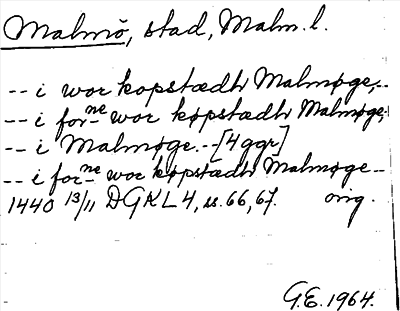 Malmö, stad, Malm. l.
-- i wor kopstædh Malmøge,--
-- i forne wor køpstædh Malmøge,
-- i Malmøge.--[4 ggr]
-- i forne wor køpstædh Malmøge--
1440 13/11 DGKL 4, s. 66, 67. orig.
G.E. 1964.